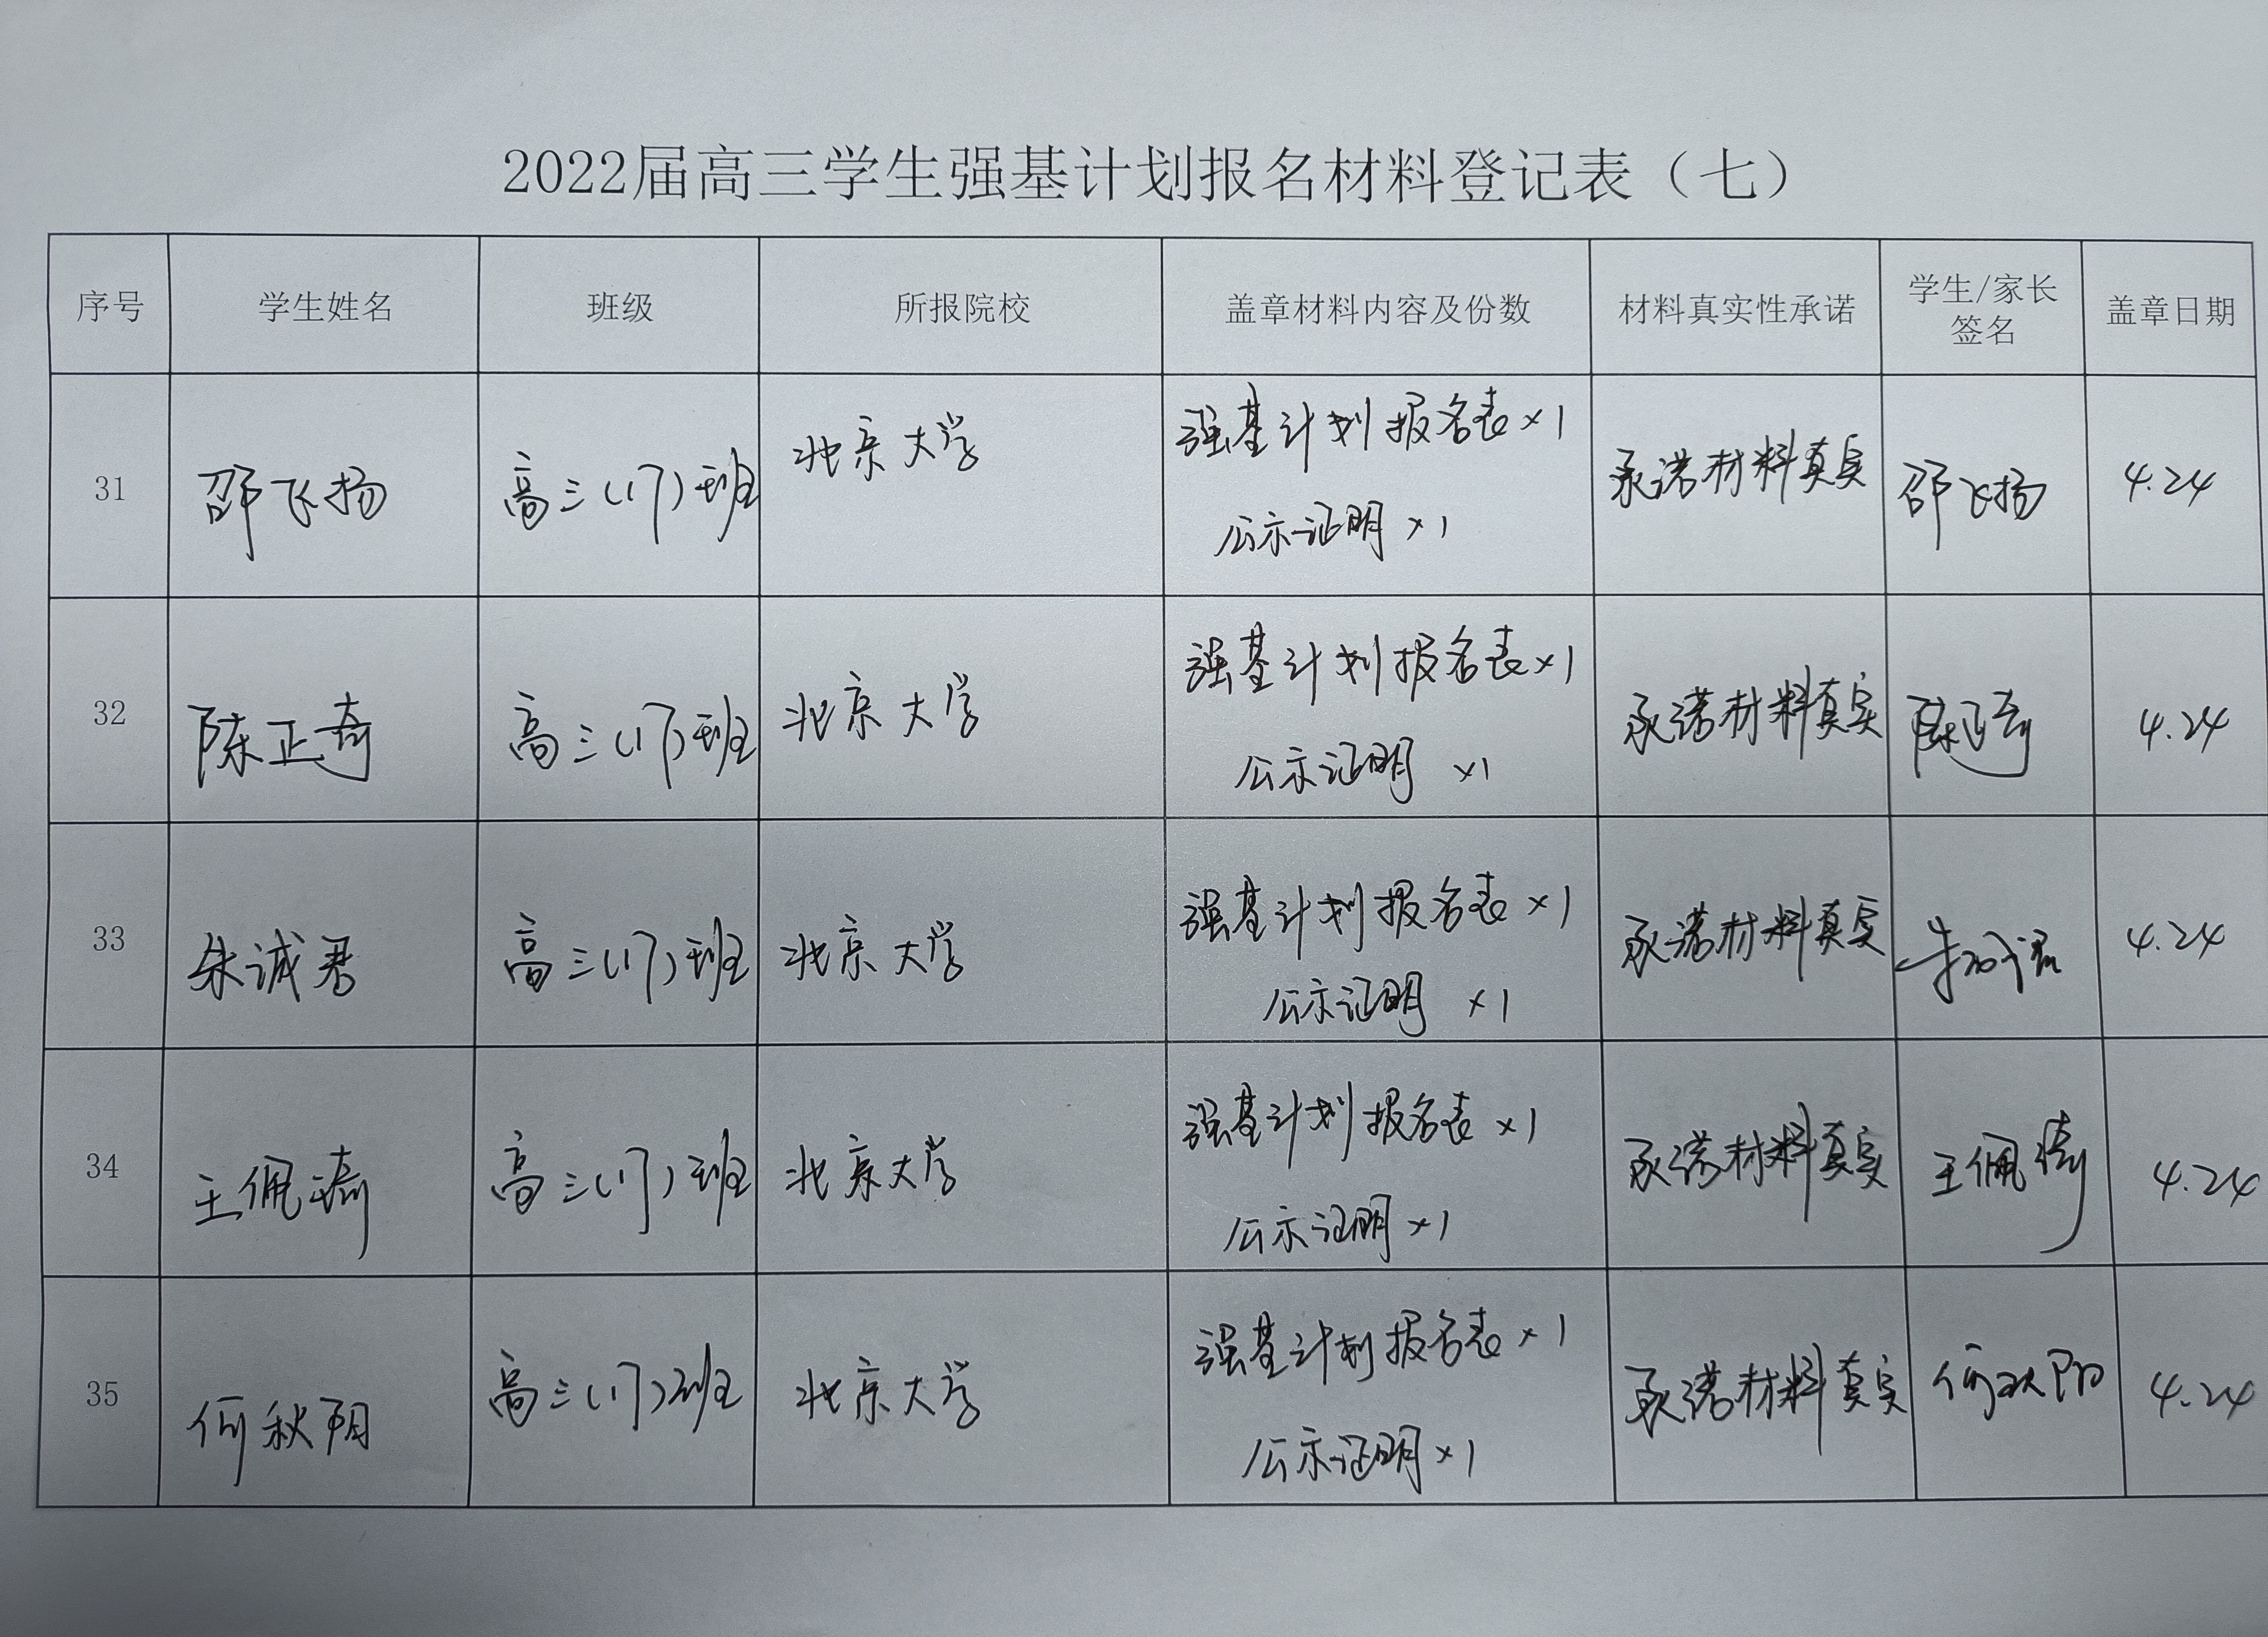 2022届高三学生强基计划报名材料登记表（七）
序号 学生姓名 班级 所报院校 盖章材料内容及份数 材料真实性承诺 学生/家长签名 盖章日期
31 邵飞扬 高三(17)班 北京大学 强基计划报名表×1 承诺材料真实 邵飞扬 4.24
公示证明×1
32 陈正奇 高三(17)班 北京大学 强基计划报名表×1 承诺材料真实 陈正奇 4.24
公示证明 ×1
33 朱诚君 高三(17)班 北京大学 强基计划报名表×1 承诺材料真实 朱诚君 4.24
公示证明 ×1
34 王佩琦 高三(17)班 北京大学 强基计划报名表×1 承诺材料真实 王佩琦 4.24
公示证明×1
35 何秋阳 高三(17)班 北京大学 强基计划报名表×1 承诺材料真实 何秋阳 4.24
公示证明×1